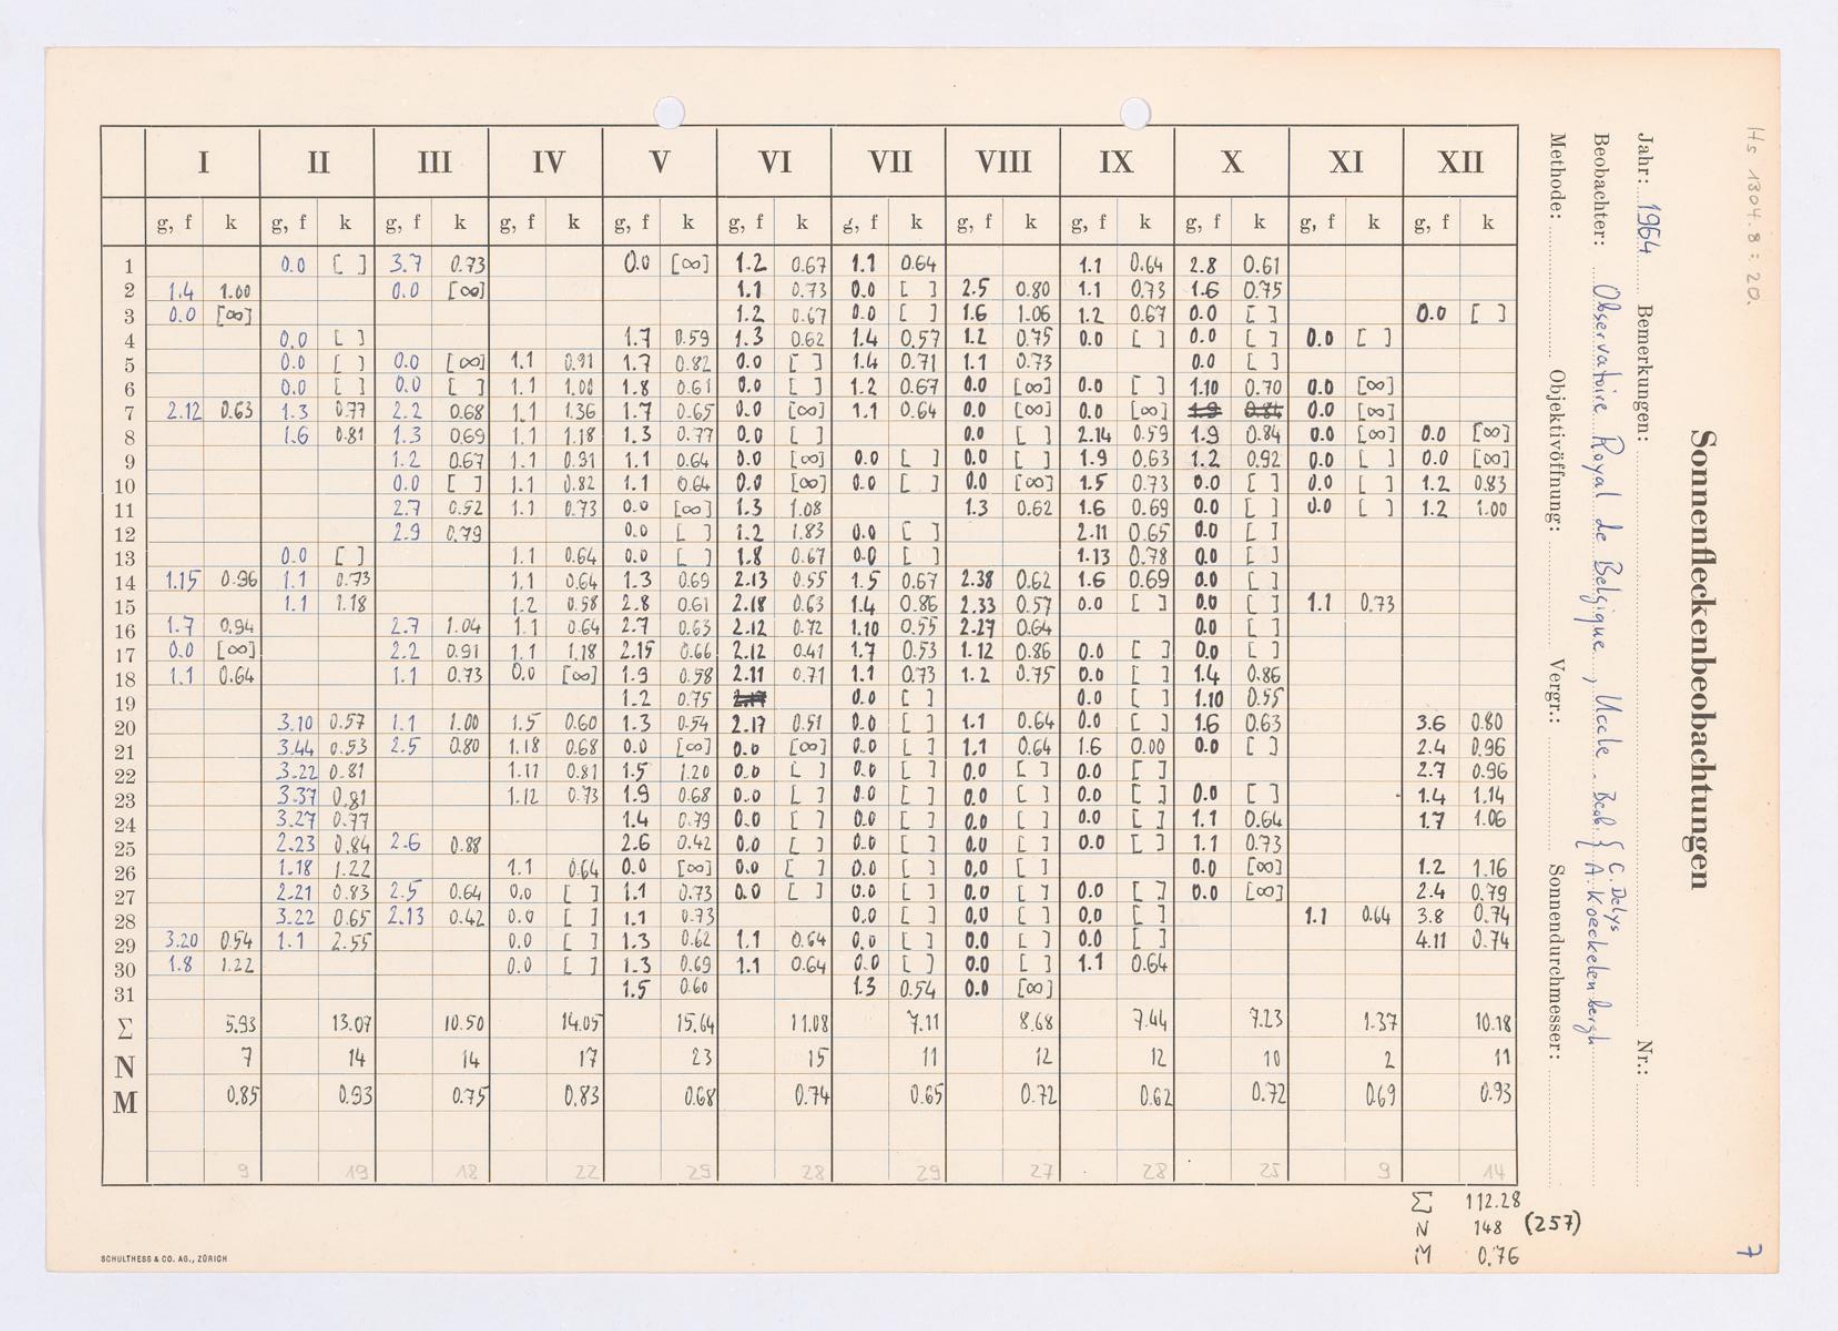 Hs 1304.8 : 20.
Sonnenfleckenbeobachtungen
Jahr: 1964 Bemerkungen: Nr.:
Beobachter: Observatoire Royal de Belgique, Uccle Beob. { C. Delys
A. Koeckelenbergh
Methode: Objektivöffnung: Vergr.: Sonnendurchmesser:
I II III IV V VI VII VIII IX X XI XII
g, f k g, f k g, f k g, f k g, f k g, f k g, f k g, f k g, f k g, f k g, f k g, f k
1 0.0 [ ] 3.7 0.73 0.0 [∞] 1.2 0.67 1.1 0.64 1.1 0.64 2.8 0.61
2 1.4 1.00 0.0 [∞] 1.1 0.73 0.0 [ ] 2.5 0.80 1.1 0.73 1.6 0.75
3 0.0 [∞] 1.2 0.67 0.0 [ ] 1.6 1.06 1.2 0.67 0.0 [ ] 0.0 [ ]
4 0.0 [ ] 1.7 0.59 1.3 0.62 1.4 0.57 1.2 0.75 0.0 [ ] 0.0 [ ] 0.0 [ ]
5 0.0 [ ] 0.0 [∞] 1.1 0.91 1.7 0.82 0.0 [ ] 1.4 0.71 1.1 0.73 0.0 [ ]
6 0.0 [ ] 0.0 [ ] 1.1 1.00 1.8 0.61 0.0 [ ] 1.2 0.67 0.0 [∞] 0.0 [ ] 1.10 0.70 0.0 [∞]
7 2.12 0.63 1.3 0.77 2.2 0.68 1.1 1.36 1.7 0.65 0.0 [∞] 1.1 0.64 0.0 [∞] 0.0 [∞] 1.9 0.84 0.0 [∞]
8 1.6 0.81 1.3 0.69 1.1 1.18 1.3 0.77 0.0 [ ] 0.0 [ ] 2.14 0.59 1.9 0.84 0.0 [∞] 0.0 [∞]
9 1.2 0.67 1.1 0.91 1.1 0.64 0.0 [∞] 0.0 [ ] 0.0 [ ] 1.9 0.63 1.2 0.92 0.0 [ ] 0.0 [∞]
10 0.0 [ ] 1.1 0.82 1.1 0.64 0.0 [∞] 0.0 [ ] 0.0 [∞] 1.5 0.73 0.0 [ ] 0.0 [ ] 1.2 0.83
11 2.7 0.52 1.1 0.73 0.0 [∞] 1.3 1.08 1.3 0.62 1.6 0.69 0.0 [ ] 0.0 [ ] 1.2 1.00
12 2.9 0.79 0.0 [ ] 1.2 1.83 0.0 [ ] 2.11 0.65 0.0 [ ]
13 0.0 [ ] 1.1 0.64 0.0 [ ] 1.8 0.67 0.0 [ ] 1.13 0.78 0.0 [ ]
14 1.15 0.96 1.1 0.73 1.1 0.64 1.3 0.69 2.13 0.55 1.5 0.67 2.38 0.62 1.6 0.69 0.0 [ ]
15 1.1 1.18 1.2 0.58 2.8 0.61 2.18 0.63 1.4 0.86 2.33 0.57 0.0 [ ] 0.0 [ ] 1.1 0.73
16 1.7 0.94 2.7 1.04 1.1 0.64 2.7 0.63 2.12 0.72 1.10 0.55 2.27 0.64 0.0 [ ]
17 0.0 [∞] 2.2 0.91 1.1 1.18 2.15 0.66 2.12 0.41 1.7 0.53 1.12 0.86 0.0 [ ] 0.0 [ ]
18 1.1 0.64 1.1 0.73 0.0 [∞] 1.9 0.58 2.11 0.71 1.1 0.73 1.2 0.75 0.0 [ ] 1.4 0.86
19 1.2 0.75 0.0 [ ] 0.0 [ ] 1.10 0.55
20 3.10 0.57 1.1 1.00 1.5 0.60 1.3 0.54 2.17 0.51 0.0 [ ] 1.1 0.64 0.0 [ ] 1.6 0.63 3.6 0.80
21 3.44 0.53 2.5 0.80 1.18 0.68 0.0 [∞] 0.0 [∞] 0.0 [ ] 1.1 0.64 1.6 0.00 0.0 [ ] 2.4 0.96
22 3.22 0.81 1.17 0.81 1.5 1.20 0.0 [ ] 0.0 [ ] 0.0 [ ] 0.0 [ ] 2.7 0.96
23 3.37 0.81 1.12 0.73 1.9 0.68 0.0 [ ] 0.0 [ ] 0.0 [ ] 0.0 [ ] 0.0 [ ] 1.4 1.14
24 3.27 0.77 1.4 0.79 0.0 [ ] 0.0 [ ] 0.0 [ ] 0.0 [ ] 1.1 0.64 1.7 1.06
25 2.23 0.84 2.6 0.88 2.6 0.42 0.0 [ ] 0.0 [ ] 0.0 [ ] 0.0 [ ] 1.1 0.73
26 1.18 1.22 1.1 0.64 0.0 [∞] 0.0 [ ] 0.0 [ ] 0.0 [ ] 0.0 [∞] 1.2 1.16
27 2.21 0.83 2.5 0.64 0.0 [ ] 1.1 0.73 0.0 [ ] 0.0 [ ] 0.0 [ ] 0.0 [ ] 0.0 [∞] 2.4 0.79
28 3.22 0.65 2.13 0.42 0.0 [ ] 1.1 0.73 0.0 [ ] 0.0 [ ] 0.0 [ ] 1.1 0.64 3.8 0.74
29 3.20 0.54 1.1 2.55 0.0 [ ] 1.3 0.62 1.1 0.64 0.0 [ ] 0.0 [ ] 0.0 [ ] 4.11 0.74
30 1.8 1.22 0.0 [ ] 1.3 0.69 1.1 0.64 0.0 [ ] 0.0 [ ] 1.1 0.64
31 1.5 0.60 1.3 0.54 0.0 [∞]
Σ 5.93 13.07 10.50 14.05 15.64 11.08 7.11 8.68 7.44 7.23 1.37 10.18
N 7 14 14 17 23 15 11 12 12 10 2 11
M 0.85 0.93 0.75 0.83 0.68 0.74 0.65 0.72 0.62 0.72 0.69 0.93
9 19 18 22 29 28 29 27 28 25 9 14
Σ 112.28
N 148 (257)
M 0.76
7
SCHULTHESS & CO. AG., ZÜRICH